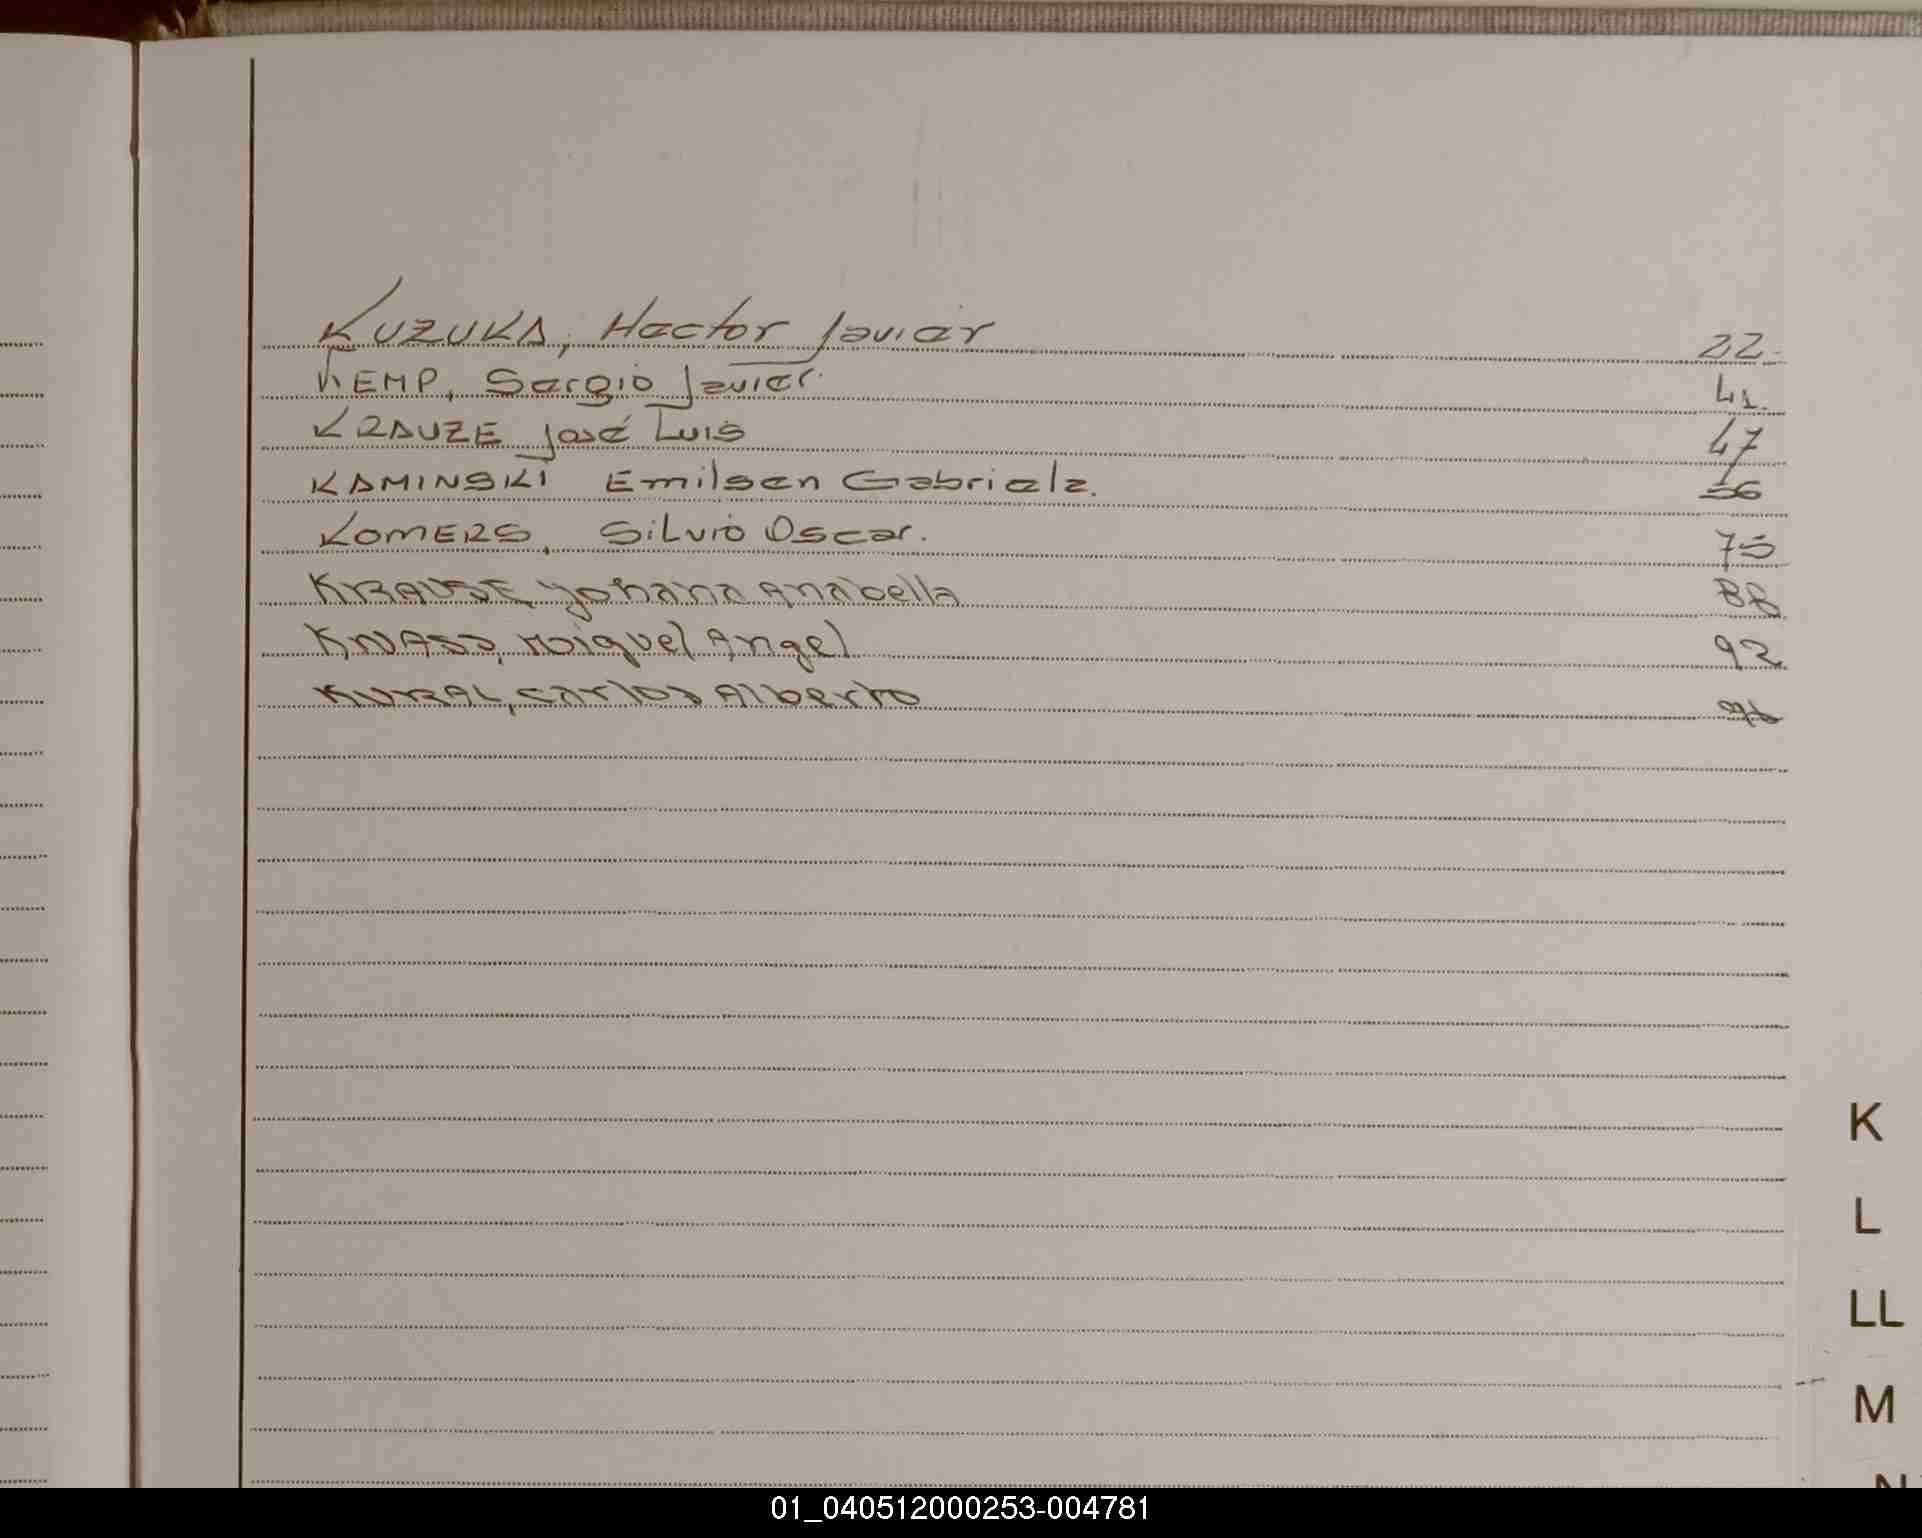 KUZUKA, Hector Javier 22
KEMP, Sergio Javier. 41.
KRAUZE José Luis 47
KAMINSKI Emilsen Gabriela. 56
KOMERS, Silvio Oscar. 75
KRAUSE, Yohana Anabella 88
KNASS, Miguel Angel 92
KURAL, Carlos Alberto 96
K
L
LL
M
N
01_040512000253-004781